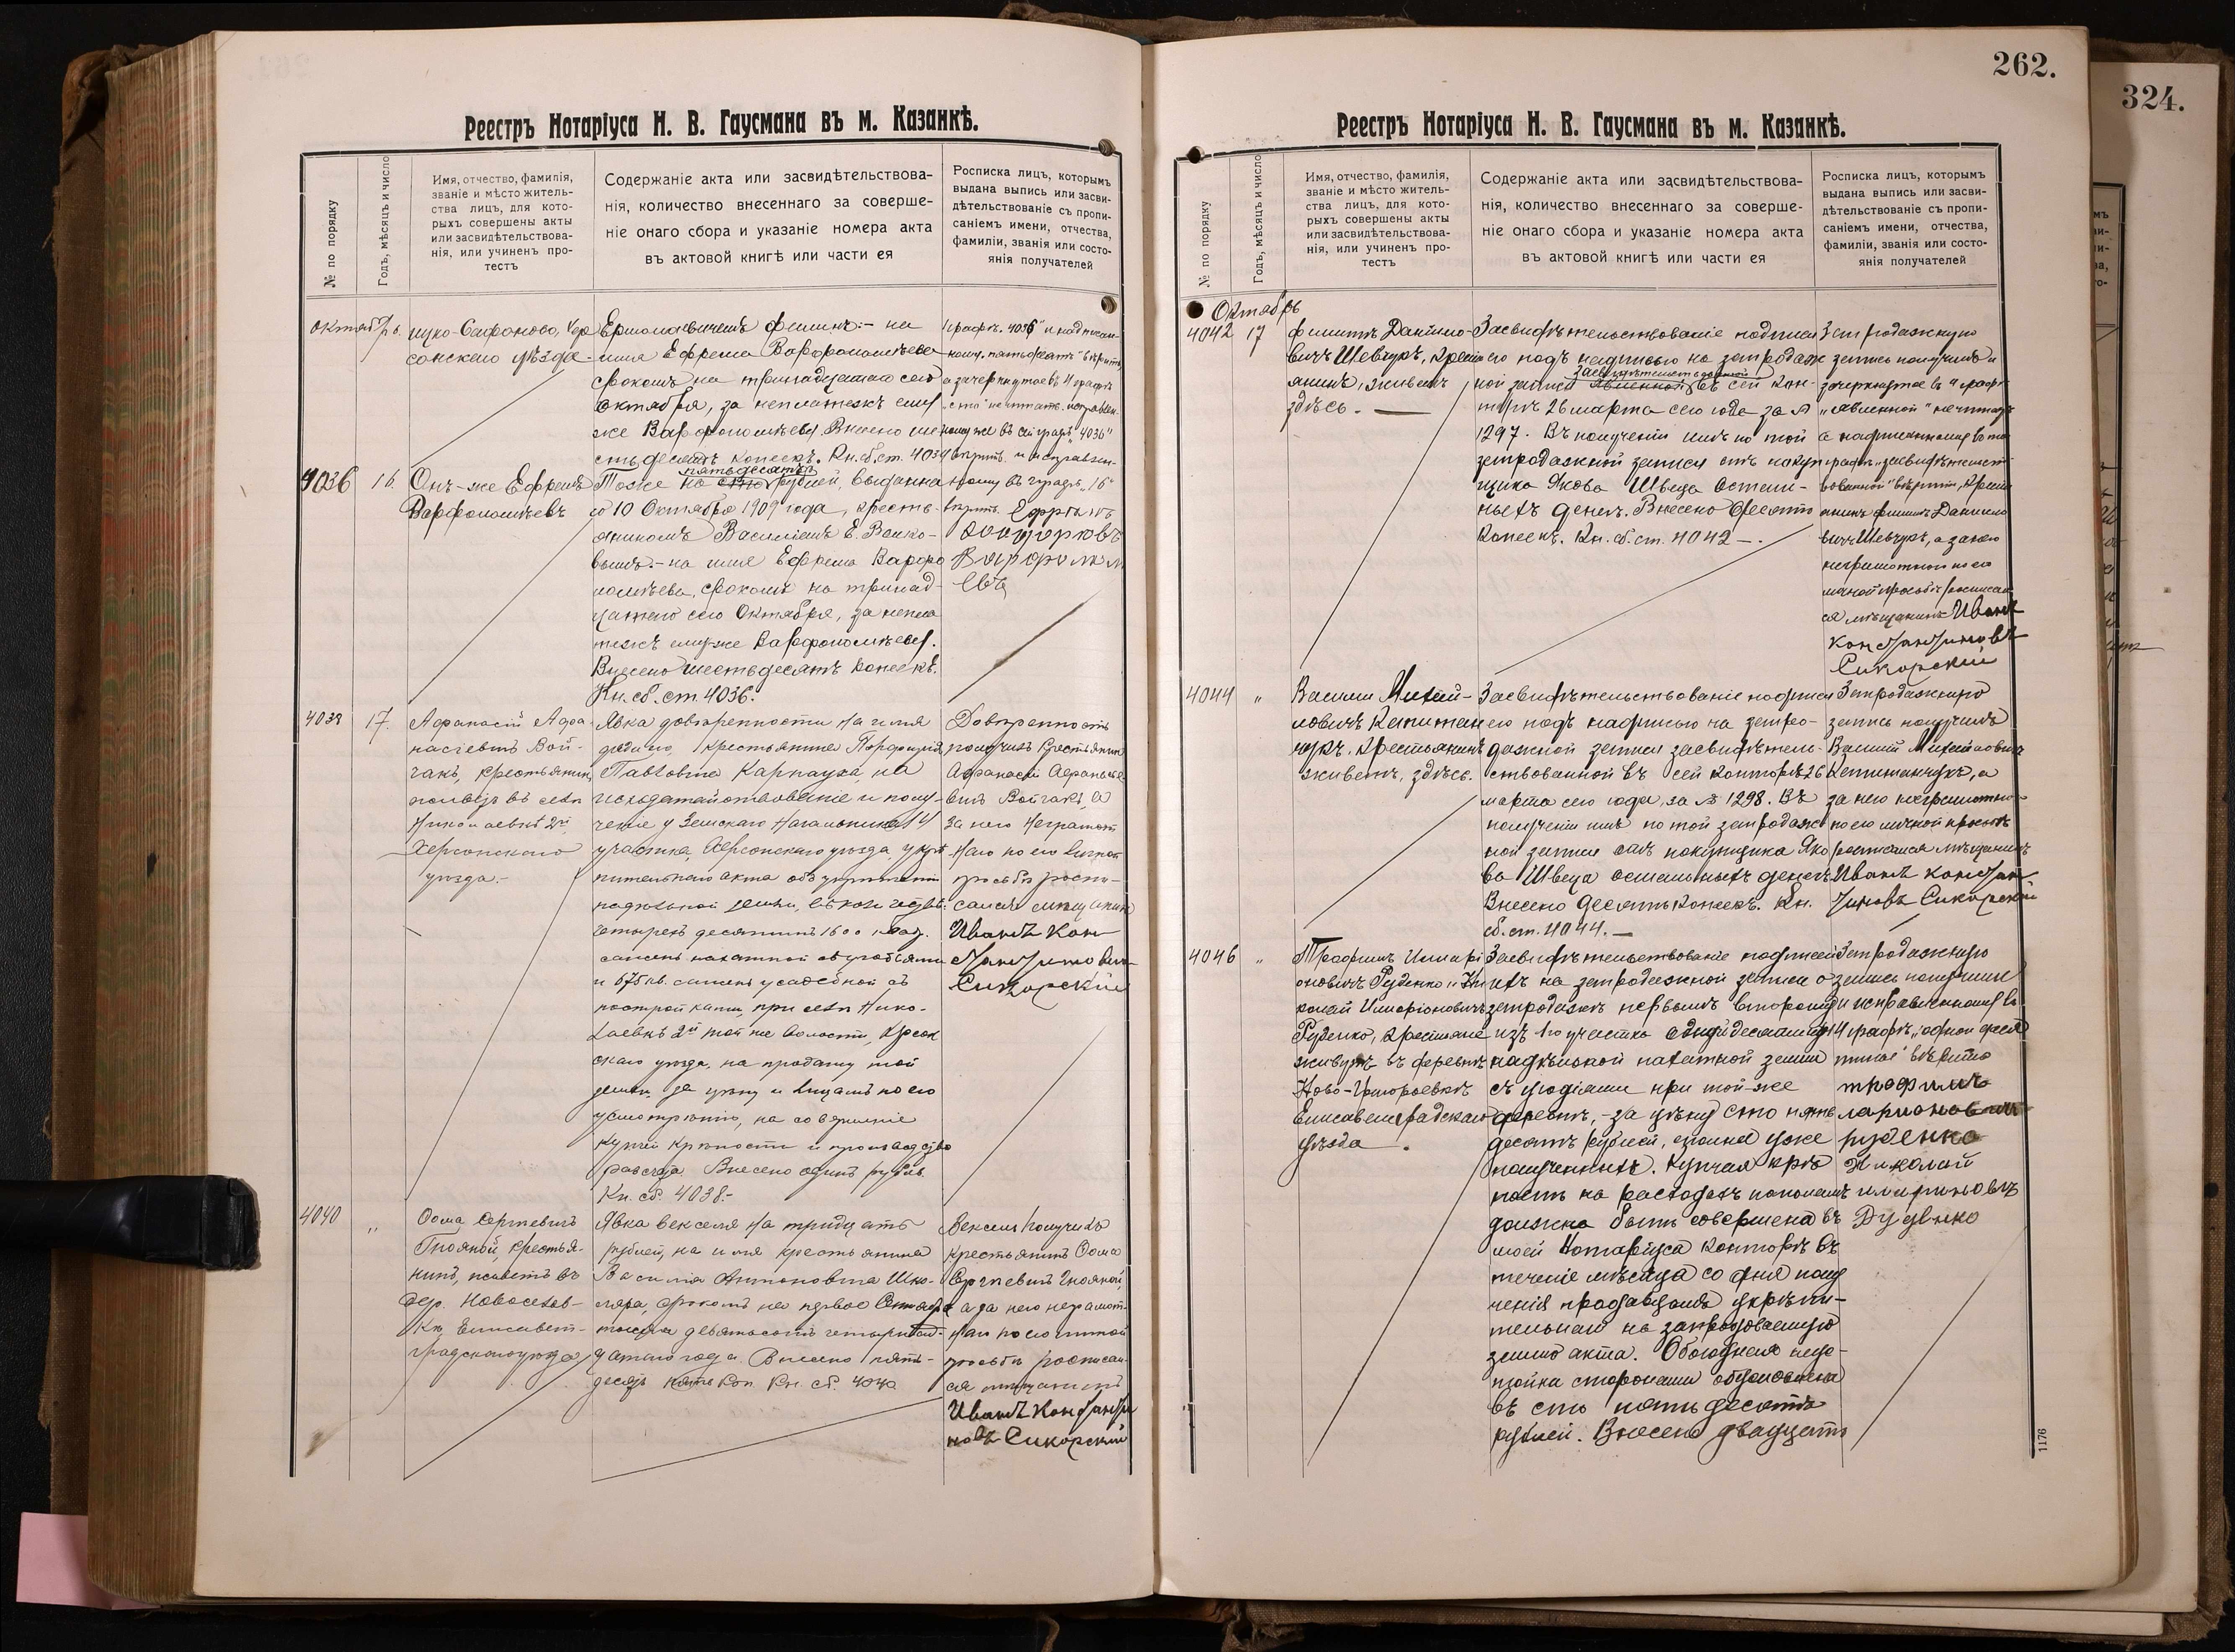 262.
324.
Реестръ Нотаріуса Н. В. Гаусмана въ м. Казанкѣ.
№ по порядку
Годъ, мѣсяцъ и число
Имя, отчество, фамилія,
званіе и мѣсто житель-
ства лицъ, для кото-
рыхъ совершены акты
или засвидѣтельствова-
нія, или учиненъ про-
тестъ
Содержаніе акта или засвидѣтельствова-
нія, количество внесеннаго за соверше-
ніе онаго сбора и указаніе номера акта
въ актовой книгѣ или части ея
Росписка лицъ, которымъ
выдана выпись или засви-
дѣтельствованіе съ пропи-
саніемъ имени, отчества,
фамиліи, званія или состо-
янія получателей
Октябрь
Сафоново, Хер
сонскаго уѣзда
Ермолаевичемъ на
имя Ефрема Варфоломѣева
срокомъ на тринадцатаго сего
Октября, за неплатежъ ему
же Варфоломѣеву. Внесено ше
стьдесятъ копеекъ. Кн. сб. ст. 4034
графѣ. 4036" и надписан-
ному "пятьдесятъ" вѣрить
а зачеркнутое въ 4 графѣ
"сто" не читать. исправлен-
ному же въ сей графѣ "4036"
вѣрить. и исправлен-
4036
16
Онъ-же Ефремъ
Варфоломѣевъ
пятьдесятъ
Тоже на сто рублей, выданна
го 10 Октября 1909 года, кресть-
яниномъ Василіемъ Е. Волко-
вымъ.- на имя Ефрема Варфо
ломѣева, срокомъ на тринад-
цатаго сего Октября, за непла
тежъ ему-же Варфоломѣеву.
Внесено шестьдесятъ копеекъ.
Кн. сб. ст. 4036.
ному въ графѣ "16"
вѣрить. Ефремъ
4038
17.
Афанасій Афа
насіевичъ Вой-
чакъ, крестьянинъ
живетъ въ селѣ
Николаевкѣ 2й,
Херсонскаго
уѣзда.-
Явка довѣренности на имя
крестьянина Порфирія
Павловича Карпауха, на
исходатайствованіе и полу-
ченіе у Земскаго Начальника 4
участка, Херсонскаго уѣзда, укрѣ
пительнаго акта объ укрѣпленіи
надѣльной земли,
четырехъ десятинъ 1600 квад.
сажень пахатной съ угодіями
и 675 кв. сажень усадебной съ
постройками, при селѣ Нико-
лаевкѣ 2й той же волости Херсон
скаго уѣзда, на продажу той
земли, за цѣну и лицамъ по его
усмотрѣнію, на совершеніе
купчей крѣпости и производство
разсчета. Внесено одинъ рубль.
Кн. сб. 4038.-
Довѣренность
получилъ крестьянинъ
Афанасій Афанасье
вичъ Войчакъ, а
за него неграмот
наго по его личной
просьбѣ роспи-
сался мѣщанинъ
Иванъ Кон
стантинович
Сикорскій
4040
"
Ѳома Сергѣевичъ
Гнояной, крестья-
нинъ, живетъ въ
дер. Новоселов-
кѣ, Елисавет-
градскаго уѣзда
Явка векселя на тридцать
рублей, на имя крестьянина
Василія Антоновича Шко-
ляра, срокомъ на первое Сентября
тысяча девятьсотъ четырнад-
цатаго года. Внесено пять-
десятъ пять Коп. Кн. сб. 4040
Вексель получилъ
крестьянинъ Ѳома
Сергѣевичъ Гнояной,
а за него неграмот-
наго по его личной
просьбѣ росписал-
ся мѣщанинъ
Иванъ Константи
новъ Сикорскій
Реестръ Нотаріуса Н. В. Гаусмана въ м. Казанкѣ.
№ по порядку
Годъ, мѣсяцъ и число
Имя, отчество, фамилія,
званіе и мѣсто житель-
ства лицъ, для кото-
рыхъ совершены акты
или засвидѣтельствова-
нія, или учиненъ про-
тестъ
Содержаніе акта или засвидѣтельствова-
нія, количество внесеннаго за соверше-
ніе онаго сбора и указаніе номера акта
въ актовой книгѣ или части ея
Росписка лицъ, которымъ
выдана выпись или засви-
дѣтельствованіе съ пропи-
саніемъ имени, отчества,
фамиліи, званія или состо-
янія получателей
Октябрь
4042
17
Филиппъ Данило-
вичъ Шевчукъ, кресть
янинъ, живетъ
здѣсь.
Засвидѣтельствованіе подписи
его подъ надписью на запродаж
засвидѣтельствованной
ной записи явленной въ сей кон-
торѣ 26 марта сего года за №
1297. Въ полученіи имъ по той
запродажной записи отъ покуп
щика Якова Швеца осталь-
ныхъ денегъ. Внесено десять
копеекъ. Кн. сб. ст. 4042 —.
Запродажную
запись получилъ и
зачеркнутое въ 4 графѣ
"явленной" не читать
а надписанному въ той
графѣ "засвидѣтельст-
вованной" вѣрить, кресть
янинъ Филиппъ Данило
вичъ Шевчукъ, а за него
неграмотнаго по его
личной просьбѣ росписал
ся мѣщанинъ Иванъ
Константиновъ
Сикорскій
4044
"
Василій Михай-
ловичъ Капитан
чукъ, крестьянинъ
живетъ, здѣсь.
Засвидѣтельствованіе подписи
его подъ надписью на запро-
дажной записи засвидѣтель-
ствованной въ сей конторѣ 26
марта сего года, за № 1298. Въ
полученіи имъ по той запродаж
ной записи отъ покупщика Яко
ва Швеца остальныхъ денегъ
Внесено десять копеекъ. Кн.
сб. ст. 4044.—
Запродажную
запись получилъ
Василій Михайловичъ
Капитанчукъ, а
за него неграмотна-
по его личной просьбѣ
росписался мѣщанинъ
Иванъ Констан
тиновъ Сикорскій
4046
"
Трофимъ Иларі
оновичъ Руденко и Ни
колай Иларіоновичъ
Руденко, крестьяне
живутъ въ деревнѣ
Ново-Григорьевкѣ
Елисаветградскаго
уѣзда.
Засвидѣтельствованіе подписей
ихъ на запродажной записи о
запродажѣ первымъ второму
изъ 1го участка одной десятины
надѣльной пахатной земли
съ угодіями при той-же
деревнѣ, - за цѣну сто пять
десятъ рублей, сполна уже
полученныхъ. Купчая крѣ
пость на расходахъ пополамъ
должна быть совершена въ
моей Нотаріуса конторѣ въ
теченіе мѣсяца со дня полу
ченія продавцомъ укрѣпи-
тельнаго на запродаваемую
землю акта. Обоюдная неу-
стойка сторонами обусловлена
въ сто пятьдесятъ
рублей. Внесено двадцать
Запродажную
запись получили
и исправленному въ
4 графѣ "одной деся
тины" вѣрить
трофимъ
ларионовичъ
руденко
Николай
Руденко
1176